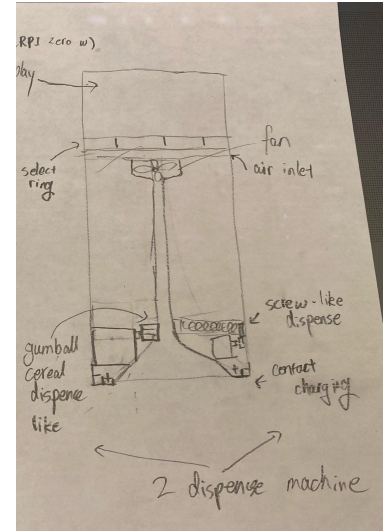 RPI Zero w)
play
fan
select
ring
air inlet
screw-like
dispense
gumball
cereal
dispense
like
contact
charging
2 dispense machine